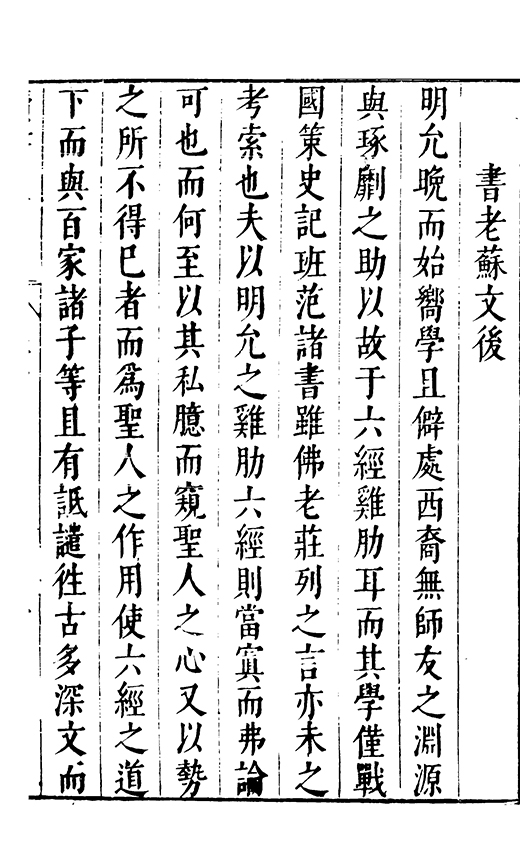 書老蘇文後
明允晚而始嚮學且僻處西裔無師友之淵源
與琢劘之助以故于六經雞肋耳而其學僅戰
國策史記班范諸書雖佛老莊列之言亦未之
考索也夫以明允之雞肋六經則當寘而弗論
可也而何至以其私臆而窺聖人之心又以勢
之所不得已者而為聖人之作用使六經之道
下而與百家諸子等且有詆譴徃古多深文而